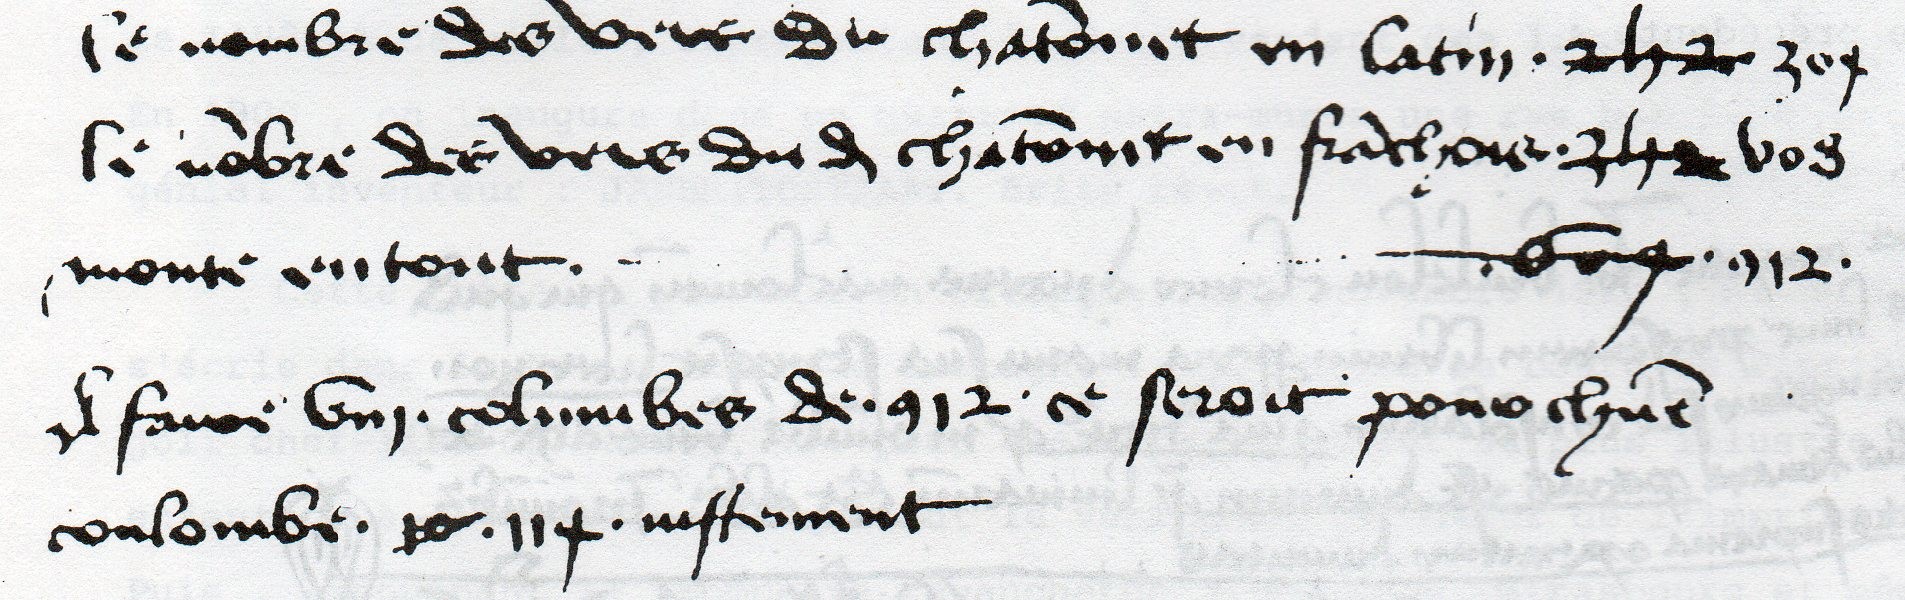 le nombre des vers du chatōnet en latin . 304
le nōbre des vers du d chatōnet en frāchois . 608
monte en tout . 912 .
faut viii . columbes de . 912 . ce seroit pour chūne
coulombe . 114 . iustement